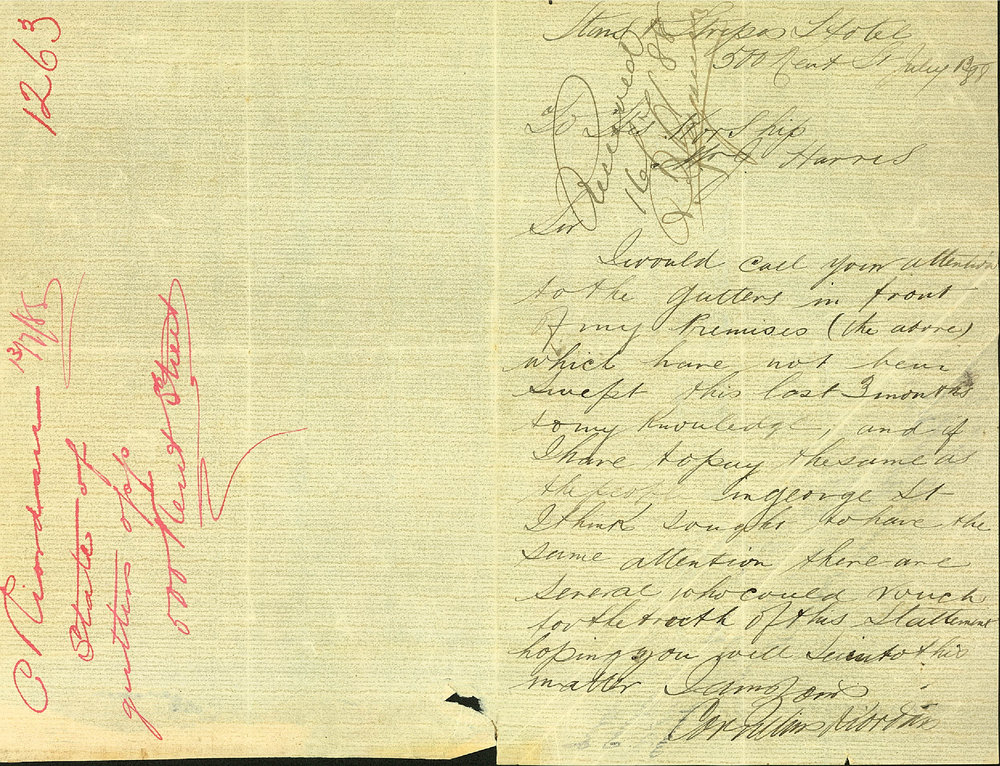 1263
C Riordan 13/7/88
State of
gutters opp
500 Kent Street
Stars & Stripes Hotel
500 Kent St July 13 88
To His Worship
Harris
Received
16/7/88
Sir
I would call your attention
to the gutters in front
of my Premises (the above)
which have not been
swept this last 3 months
to my Knowledge, and if
I have to pay the same as
the people in george St
I think I ought to have the
same attention there are
several who could vouch
for the truth of this Stattement
hoping you will see into this
matter I am Yours
Cornelius Riordan